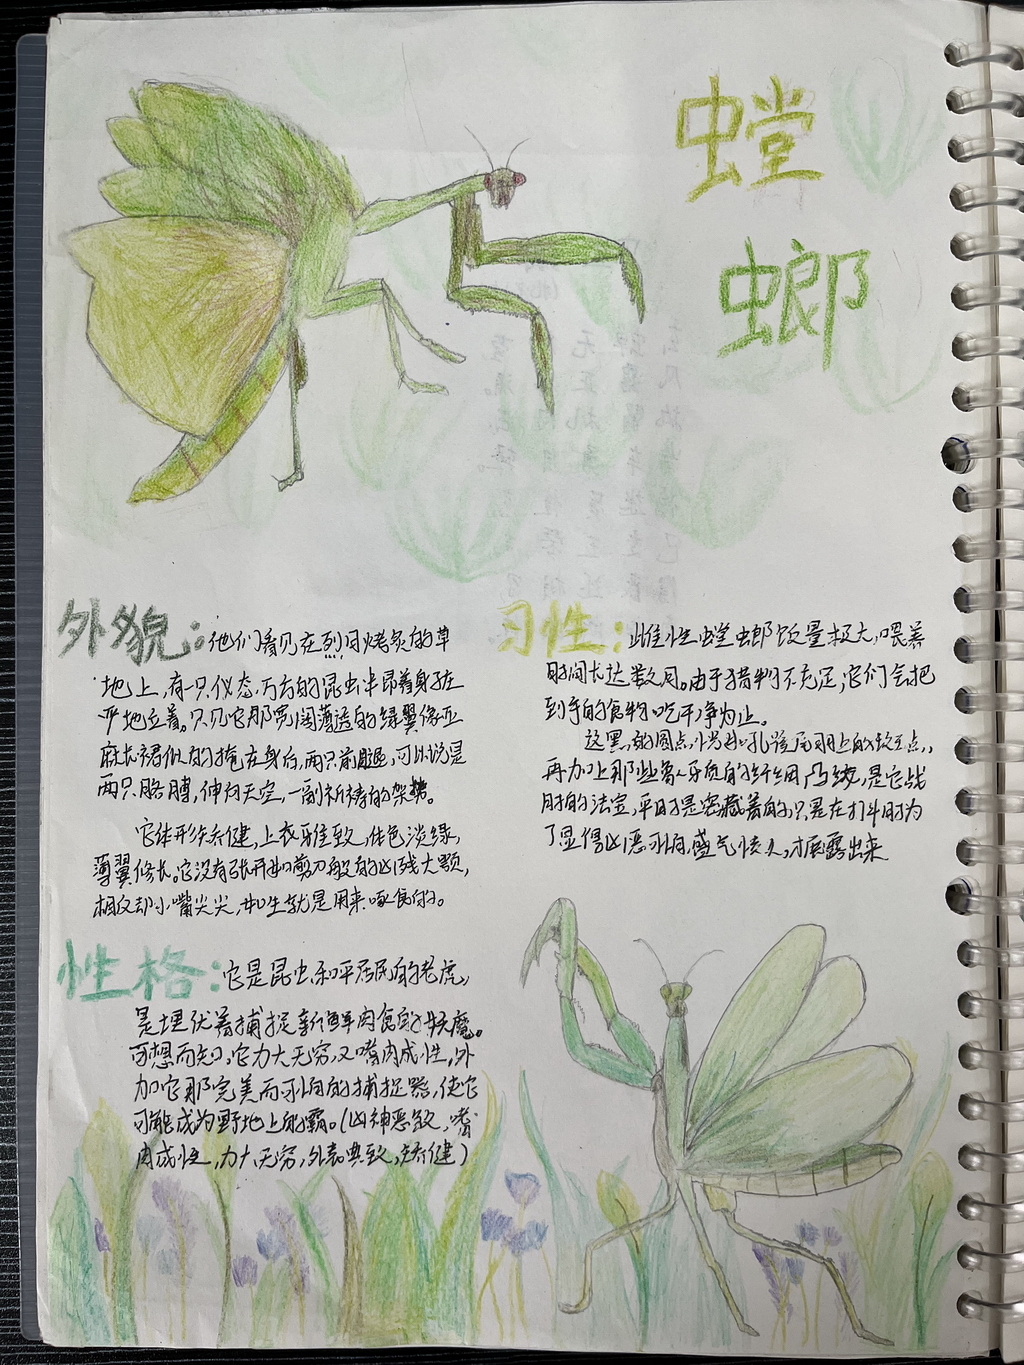 螳
螂
外貌：他们看见在烈日烤炙的草
地上，有一只仪态万方的昆虫半昂着身躯庄
严地立着。只见它那宽阔薄透的绿翼像亚
麻长裙似的掩在身后，两只前腿，可以说是
两只胳膊，伸向天空，一副祈祷的架势。
它体形矫健，上衣雅致，体色淡绿，
薄翼修长。它没有张开如剪刀般的凶残大颚，
相反却小嘴尖尖，好像生就是用来啄食的。
性格：它是昆虫和平居民的老虎，
是埋伏着捕捉新鲜肉食的妖魔。
可想而知，它力大无穷，又嗜肉成性，外
加它那完美而可怕的捕捉器，使它
可能成为野地上的霸。（凶神恶煞，嗜
肉成性，力大无穷，外表典致，矫健）
习性：雌性螳螂饭量极大，喂养
时间长达数月。由于猎物不充足，它们会把
到手的食物吃干净为止。
这黑的圆点，恍如孔雀尾羽上的斑点，
再加上那些象牙质的纤细凸纹，是它战
时的法宝，平时是密藏着的，只是在打斗时为
了显得凶恶可怕，盛气凌人，才展露出来